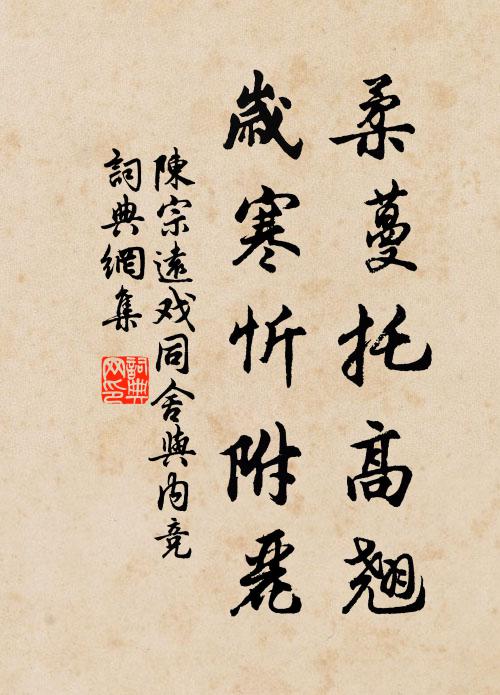 柔蔓托高翹
歲寒忻附麗
陳宗遠戏同舍與內竞
詞典網集
詞典网印